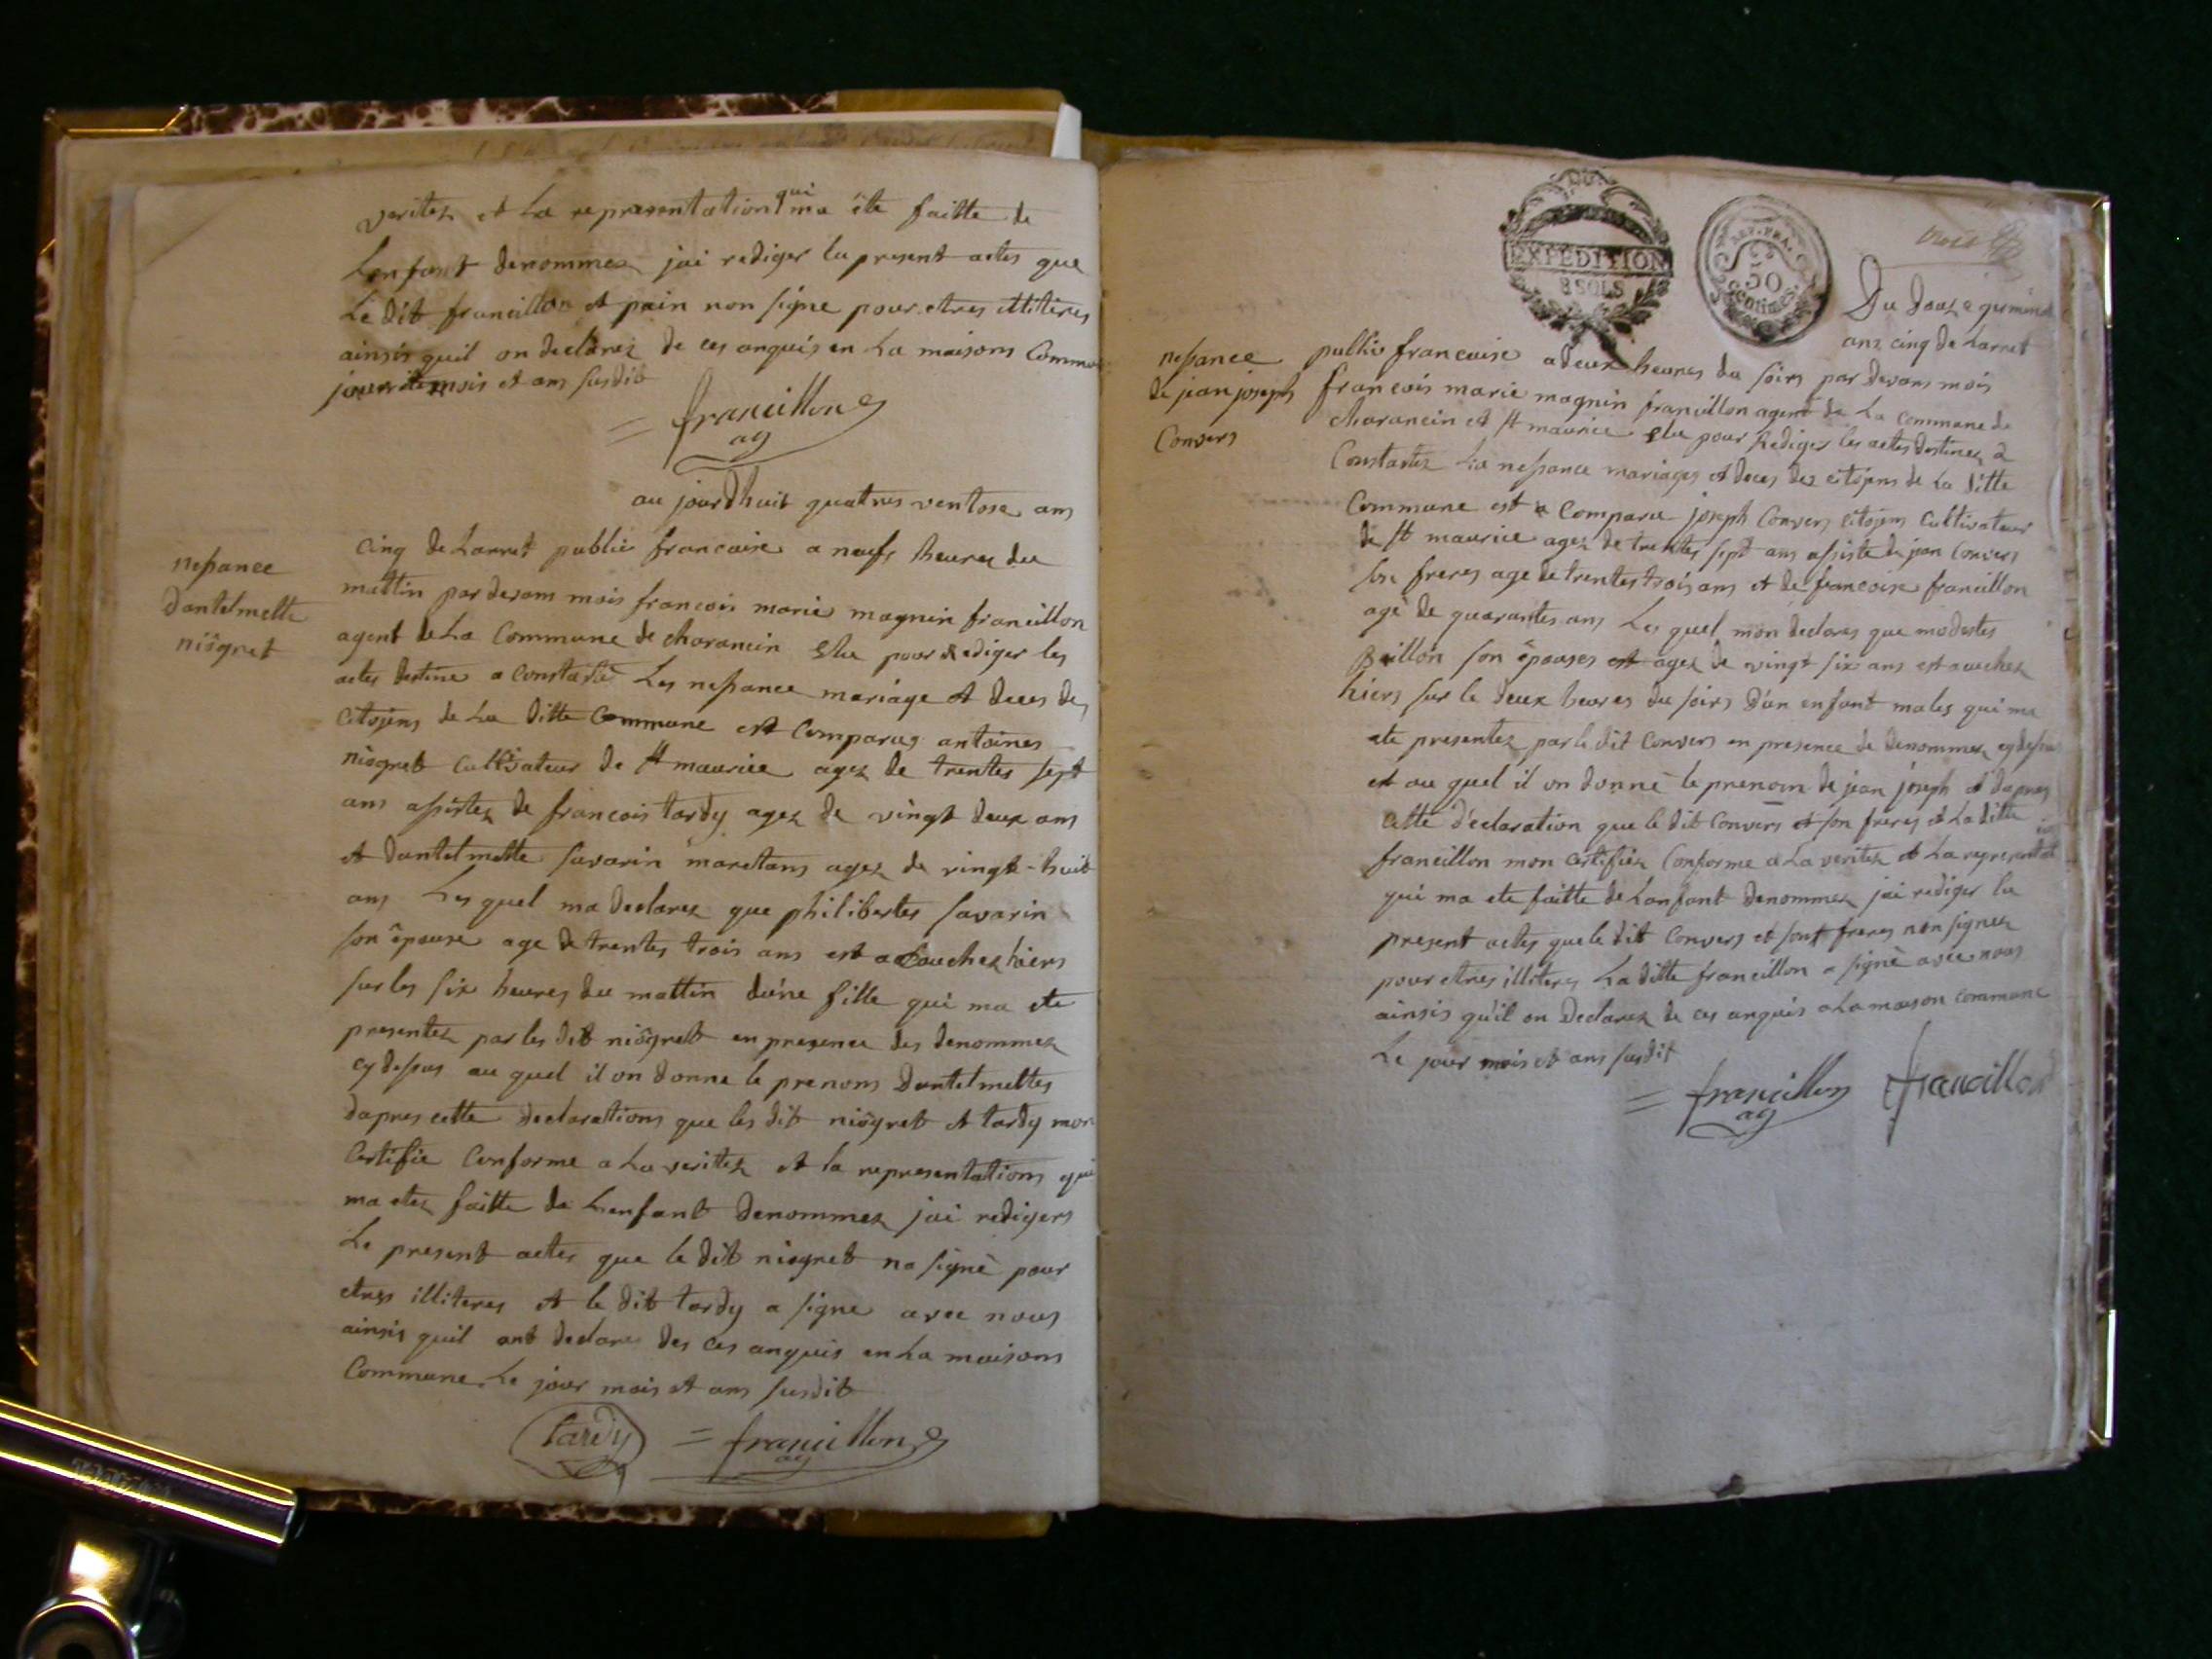 veritez et La representation qui ma ête faitte de
Lenfant denommez jai rediger lu present actes que
Le dit francillon et pain non signe pour etres illiteres
ainsis quil on declarez de ces anquis en La maisons Commu
jour mois et ans susdit
= francillon
ag
au jourdhuit quatres ventose ans
nessance
dantelmette
niogret
cinq de Larret public francaise a neufs heures du
mattin par devam mois francois marie magnin francillon
agent de La Commune de charancin elu pour rediger les
actes destine a constaste Les nessance mariage et deces des
Citojens de La ditte Commune est Comparus antoines
niogret cultivateur de st maurice agez de trentes sept
ans assistez de francois tardy agez de vingt deux ans
et dantelmette savarin maretans agez de vingt-huit
ans Les quel ma declarez que philibertes savarin
son êpouse age de trentes trois ans est accouchez hiers
sur les six heures du mattin dune fille qui ma ete
presentez par les dit niogret en presence des denommez
cy dessus au quel il on donne le prenoms dantelmettes
dapres cette declarations que les dit niogret et tardy mon
Certifie Conforme a La veritez et la representations qui
ma etez faitte de Lenfant denommez jai redigers
Le present actes que le dit niogret na signè pour
etres illiteres et le dit tardy a signe avec nous
ainsis quil ont declare des ces anquis en La maisons
Commune Le jour mois et ans susdit
tardy = francillon
ag
EXPEDITION
8 SOLS
REP. FRA.
50
centimes
trois
Du douze germinal
ans cinq de Larret
nessance
de jean joseph
Convers
public francaise a deux heures du soirs par devans mois
francois marie magnin francillon agent de La commune de
charancin et st maurice elu pour Rediger les actes destinez a
Constastez La nessance mariages et deces des citojens de La ditte
Commune est Comparu joseph Convers citojens Cultivateur
de st maurice agez de trentes sept ans assiste de jean Convers
son freres age de trentes trois ans et de francoise francillon
agè de quarantes ans Les quel mon declares que modestes
Brillon son êpouses agez de vingt six ans est acuchez
hiers sur le deux heures du soirs dun enfant males qui ma
ete presentez par le dit Convers en presence de denommez cy dessus
et au quel il on donnè le prenom de jean joseph et dapres
cette dèclaration que le dit Convers et son freres et La ditte
francillon mon certifiez Conforme a La veritez et La representat
qui ma ete faitte de Lanfant denommez jai rediger lu
present actes que le dit Convers et sont freres non signez
pour etres illiteres La ditte francillon a signè avec nous
ainsis qu'il on declarez de ces anquis a La maison commune
Le jour mois et ans susdit
= francillon francillon
ag